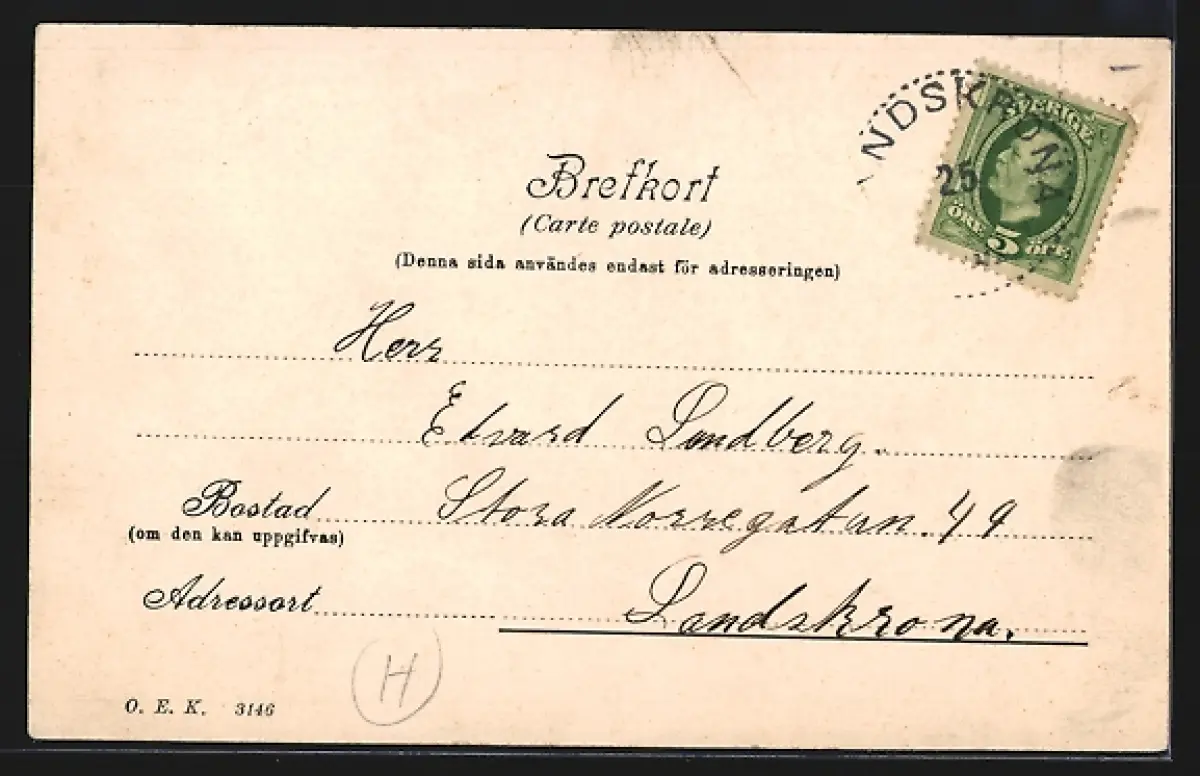 Brefkort
(Carte postale)
(Denna sida användes endast för adresseringen)
NDSKRONA
25
SVERIGE
ÖRE 5 ÖRE
Herr
Edvard Landberg.
Bostad Stora Norregatan. 49
(om den kan uppgifvas)
Adressort Landskrona.
H
O. E. K. 3146